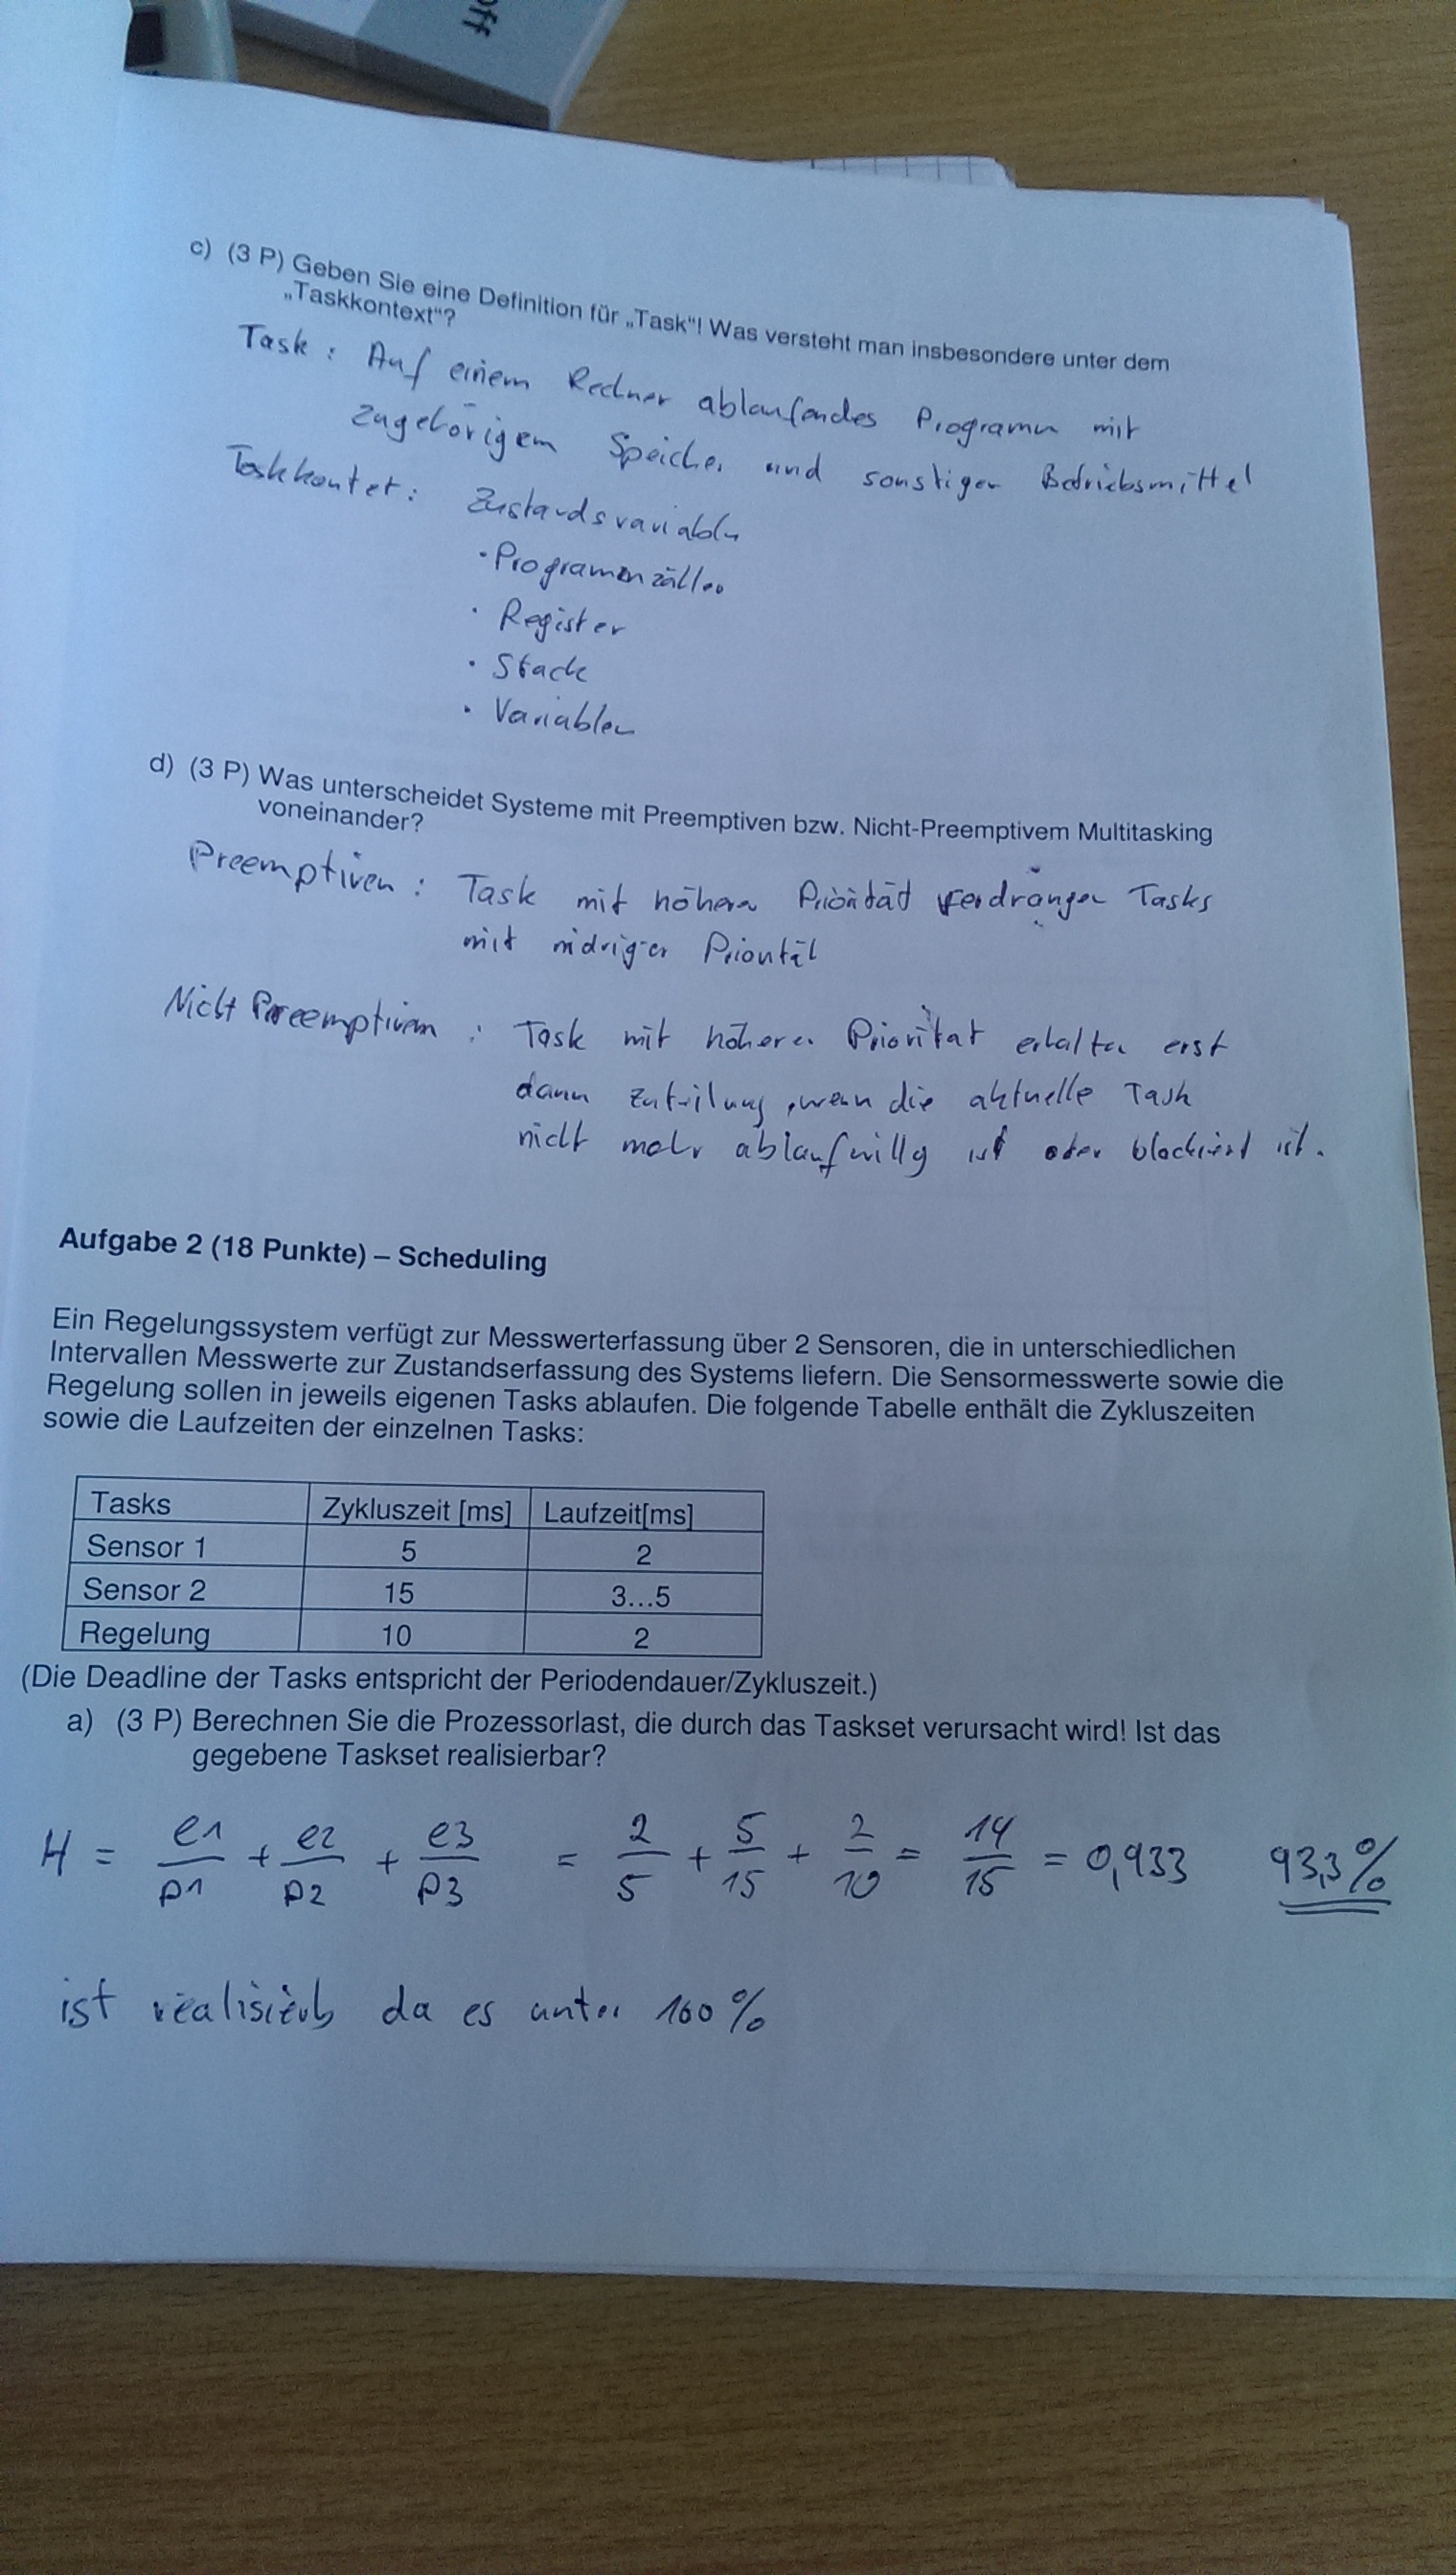 off
c) (3 P) Geben Sie eine Definition für „Task“! Was versteht man insbesondere unter dem
„Taskkontext“?
Task : Auf einem Rechner ablaufendes Programm mit
zugehörigem Speicher und sonstigen Betriebsmittel
Taskkontet : Zustandsvariabln
· Programmzäller
· Register
· Stack
· Variablen
d) (3 P) Was unterscheidet Systeme mit Preemptiven bzw. Nicht-Preemptivem Multitasking
voneinander?
Preemptiven : Task mit höhern Priorität verdrängen Tasks
mit nidriger Priorität
Nicht Preemptivem : Task mit höherer Priorität erhalten erst
dann Zuteilung, wenn die aktuelle Task
nicht mehr ablaufwillg ist oder blockiert ist.
Aufgabe 2 (18 Punkte) – Scheduling
Ein Regelungssystem verfügt zur Messwerterfassung über 2 Sensoren, die in unterschiedlichen
Intervallen Messwerte zur Zustandserfassung des Systems liefern. Die Sensormesswerte sowie die
Regelung sollen in jeweils eigenen Tasks ablaufen. Die folgende Tabelle enthält die Zykluszeiten
sowie die Laufzeiten der einzelnen Tasks:
Tasks Zykluszeit [ms] Laufzeit[ms]
Sensor 1 5 2
Sensor 2 15 3...5
Regelung 10 2
(Die Deadline der Tasks entspricht der Periodendauer/Zykluszeit.)
a) (3 P) Berechnen Sie die Prozessorlast, die durch das Taskset verursacht wird! Ist das
gegebene Taskset realisierbar?
H = e1/p1 + e2/p2 + e3/p3 = 2/5 + 5/15 + 2/10 = 14/15 = 0,933 93,3%
ist realisierb da es unter 100%